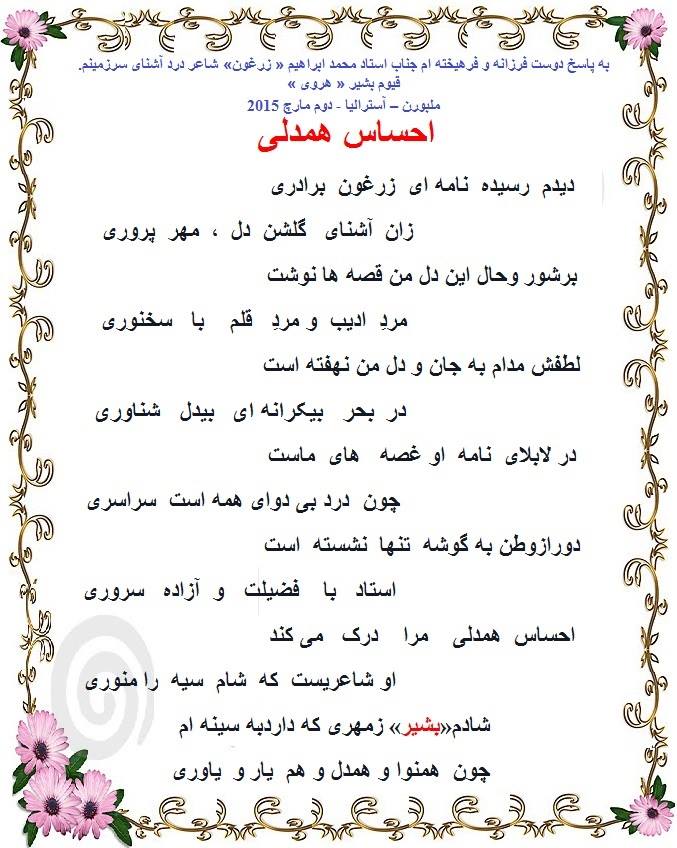 به پاسخ دوست فرزانه و فرهیخته ام جناب استاد محمد ابراهیم « زرغون» شاعر درد آشنای سرزمینم.
قیوم بشیر « هروی »
ملبورن – آسترالیا - دوم مارچ 2015
احساس همدلی
دیدم رسیده نامه ای زرغون برادری
زان آشنای گلشن دل ، مهر پروری
برشور وحال این دل من قصه ها نوشت
مردِ ادیب و مردِ قلم با سخنوری
لطفش مدام به جان و دل من نهفته است
در بحر بیکرانه ای بیدل شناوری
در لابلای نامه او غصه های ماست
چون درد بی دوای همه است سراسری
دورازوطن به گوشه تنها نشسته است
استاد با فضیلت و آزاده سروری
احساس همدلی مرا درک می کند
او شاعریست که شام سیه را منوری
شادم«بشیر» زمهری که داردبه سینه ام
چون همنوا و همدل و هم یار و یاوری